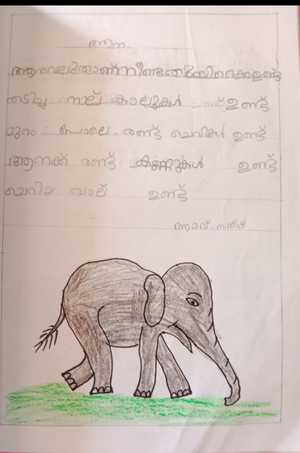 ആന
ആനവലുതാണ് നീണ്ട തുമ്പിക്കൈ ഉണ്ട്
തടിച്ച നാല് കാലുകൾ ഉണ്ട്
മുറം പോലെ രണ്ട് ചെവികൾ ഉണ്ട്
ആനക്ക് രണ്ട് കണ്ണുകൾ ഉണ്ട്
ചെറിയ വാല് ഉണ്ട്